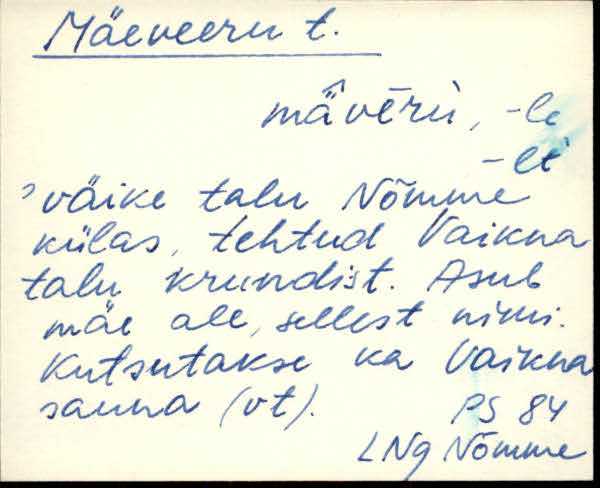 Mäeveeru t.
mä̂vēru, -le
-lt
väike talu Nõmme
külas, tehtud Vaikna
talu krundist. Asub
mäe all, sellest nimi.
Kutsutakse ka Vaikna
sauna (vt).
PS 84
LNg Nõmme